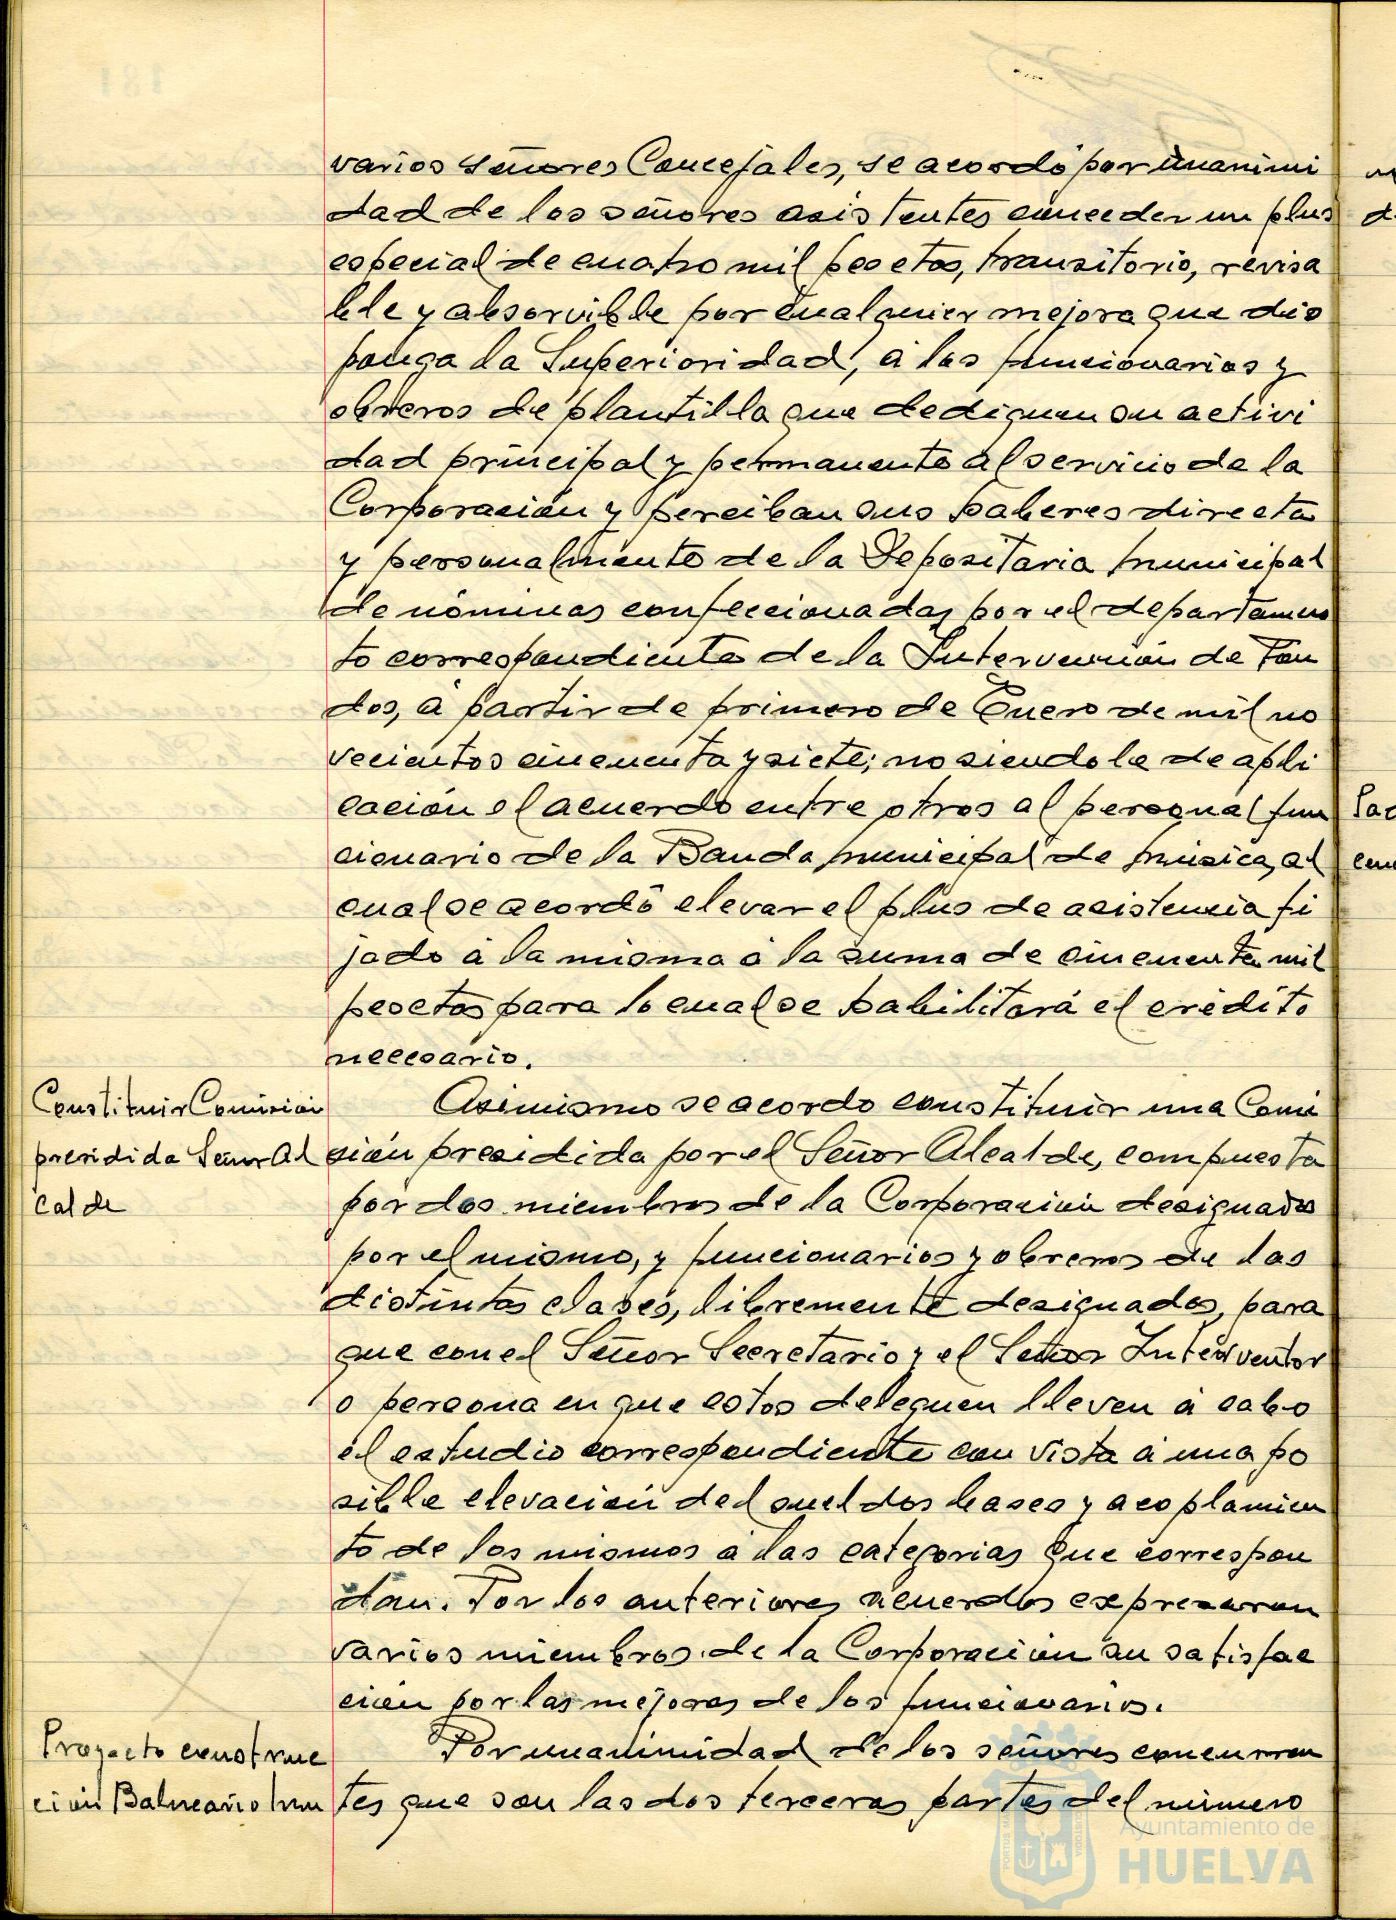 varios señores Concejales, se acordó por unanimi
dad de los señores asistentes conceder un plus
especial de cuatro mil pesetas, transitorio, revisa
ble y absorvible por cualquier mejora que dis
ponga la Superioridad, á los funcionarios y
obreros de plantilla que dediquen su activi
dad principal y permanente al servicio de la
Corporación y perciban sus haberes directa
y personalmente de la Depositaria municipal
de nóminas confeccionadas por el departamen
to correspondiente de la Intervención de Fon
dos, á partir de primero de Enero de mil no
vecientos cincuenta y siete; no siendole de apli
cación el acuerdo entre otros al personal fun
cionario de la Banda municipal de música, al
cual se acordó elevar el plus de asistencia fi
jado á la misma á la suma de cincuenta mil
pesetas para lo cual se habilitará el crédito
necesario.
Constituir Comisión
presidida Señor Al
calde
Asimismo se acordo constituir una Comi
sión presidida por el Señor Alcalde, compuesta
por dos miembros de la Corporación designados
por el mismo, y funcionarios y obreros de las
distintas clases, libremente designados, para
que con el Señor Secretario y el Señor Interventor
o persona en que estos deleguen lleven á cabo
el estudio correspondiente con vista á una po
sible elevación del sueldos bases y acoplamien
to de los mismos á las categorias que correspon
dan. Por los anteriores acuerdos expresaron
varios miembros de la Corporación su satisfac
ción por las mejoras de los funcionarios.
Proyecto construc
ción Balneario mu
Por unanimidad de los señores concurren
tes que son las dos terceras partes del número
Ayuntamiento de
HUELVA